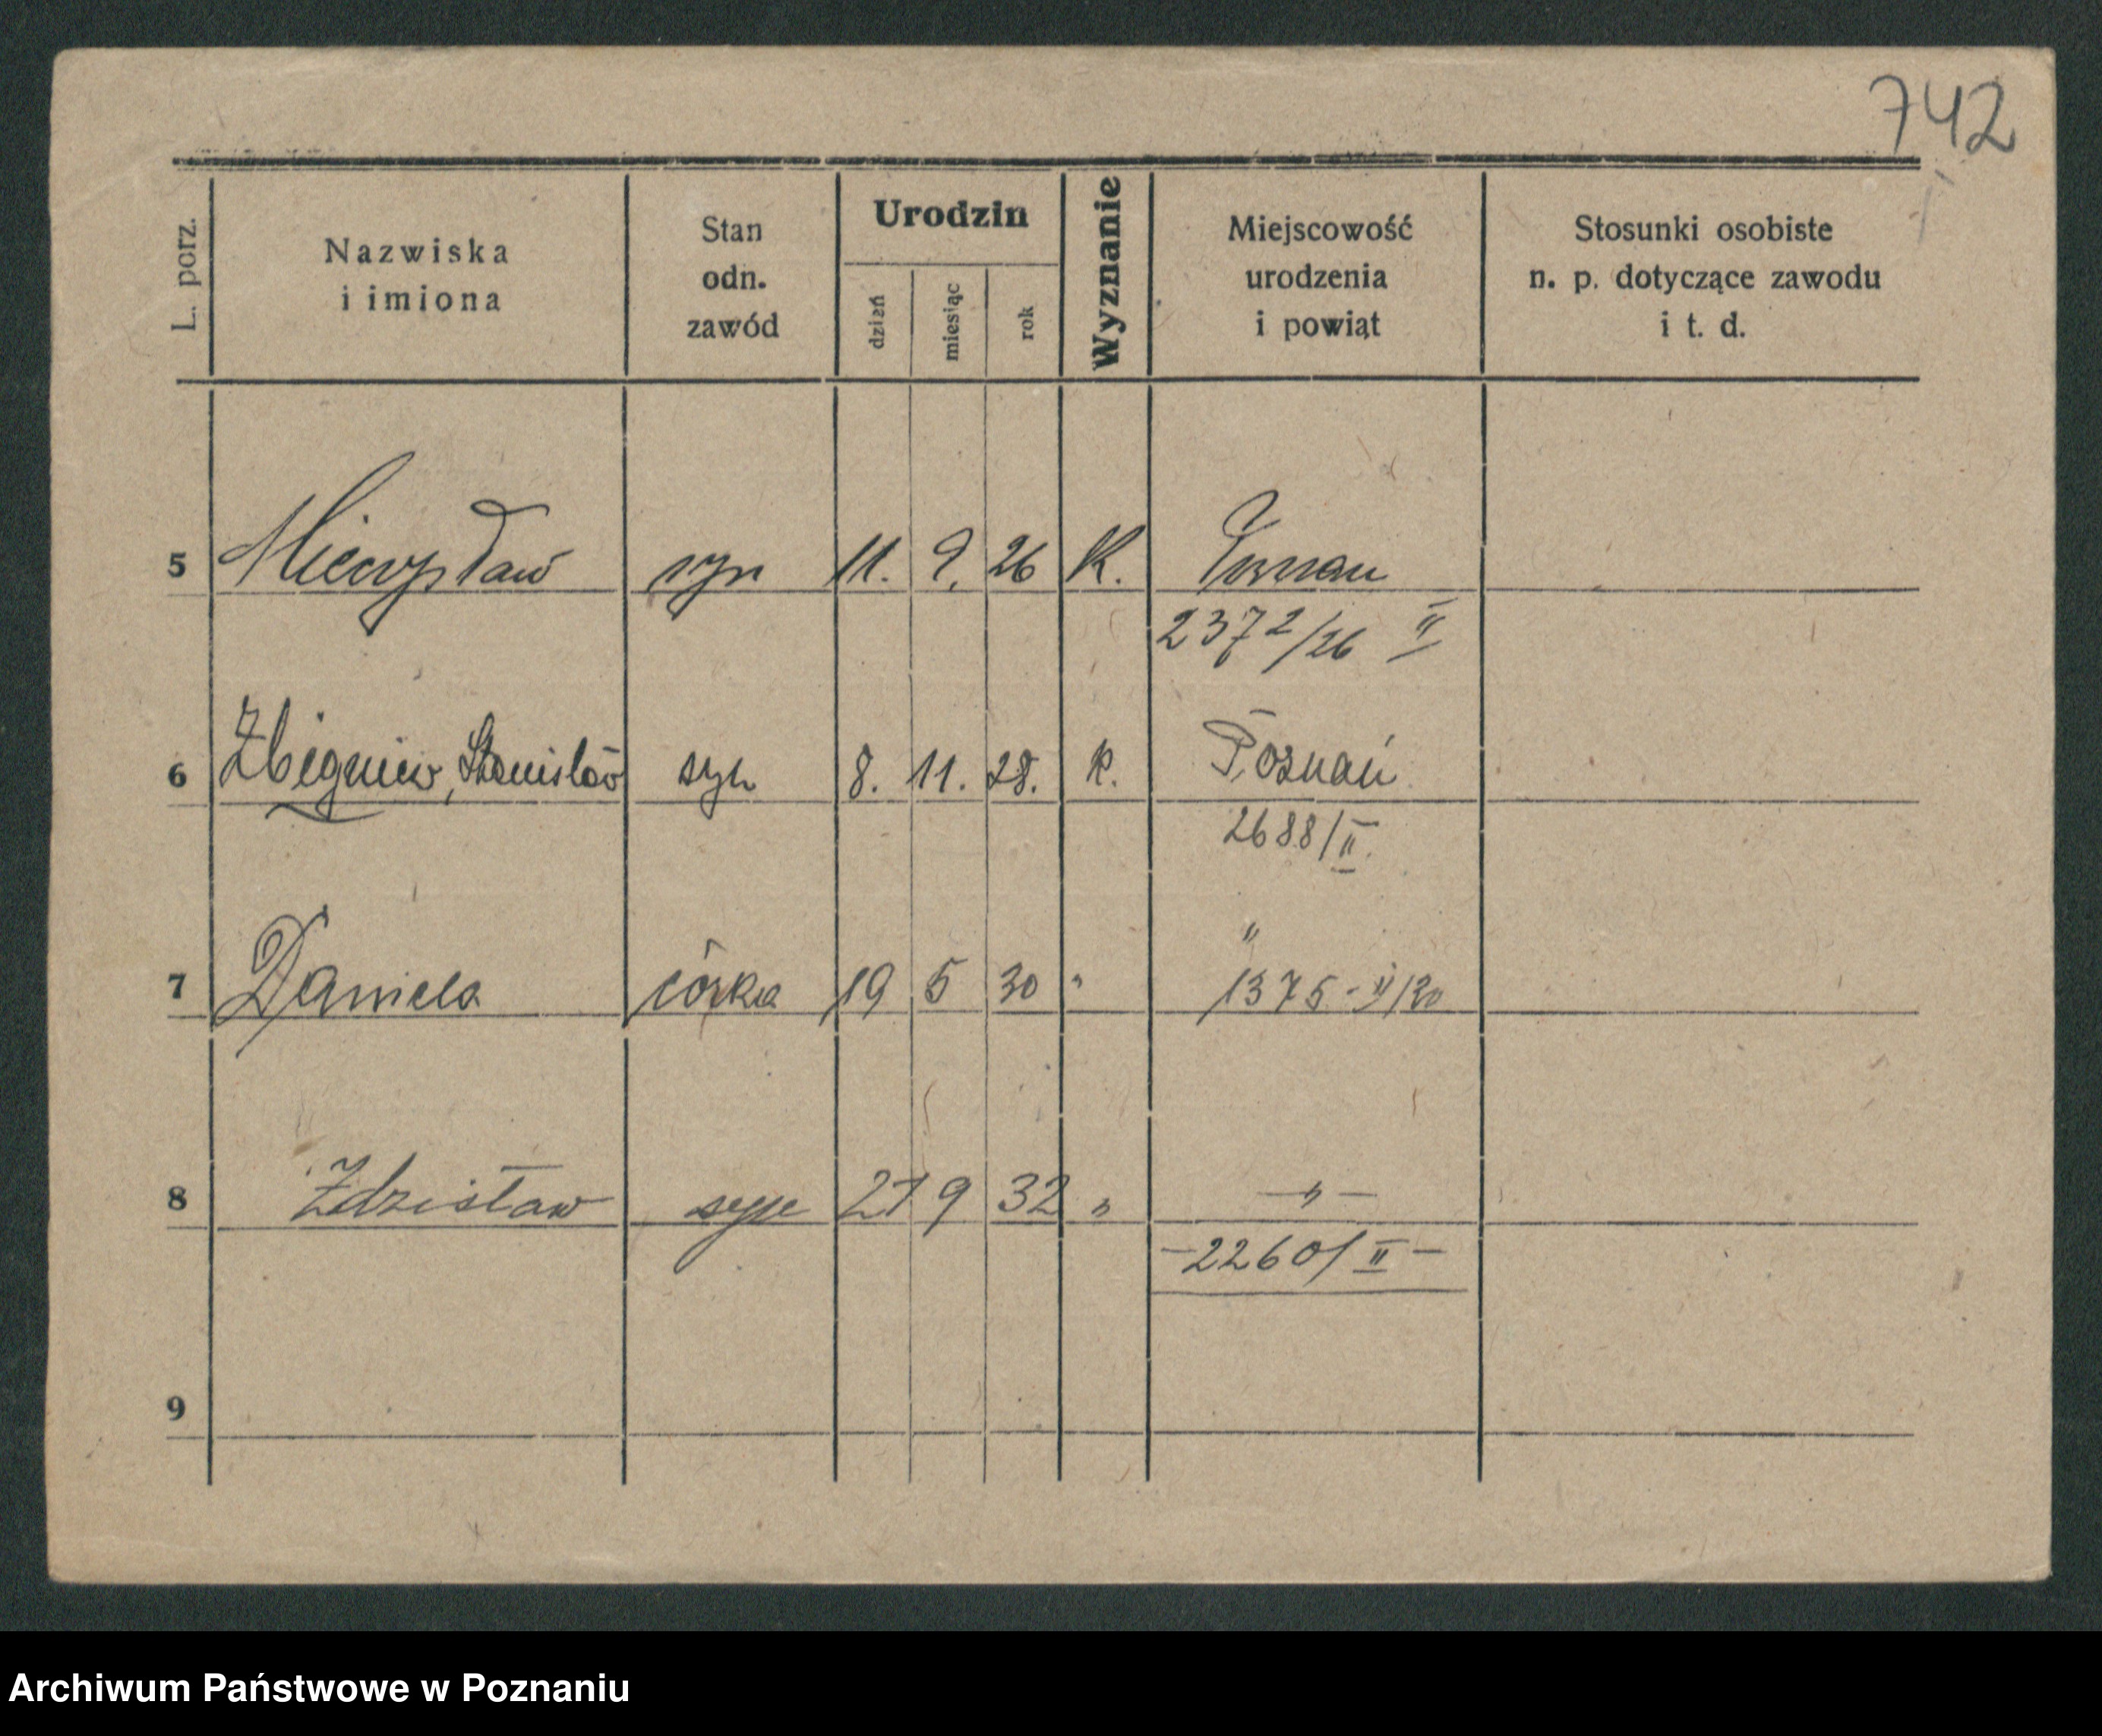 742
L. porz.
Nazwiska
i imiona
Stan
odn.
zawód
Urodzin
dzień
miesiąc
rok
Wyznanie
Miejscowość
urodzenia
i powiąt
Stosunki osobiste
n. p. dotyczące zawodu
i t. d.
5 Mieczysław syn 11. 9. 26 K. Poznań
2372/26 II
6 Zbigniew, Stanisław syn 8. 11. 28. k. Poznań
2688/II.
"
7 Daniela córka 19 5 30 " 1375-II/30
8 Zdzisław syn 21 9 32 " —"—
-2260/II-
9
Archiwum Państwowe w Poznaniu